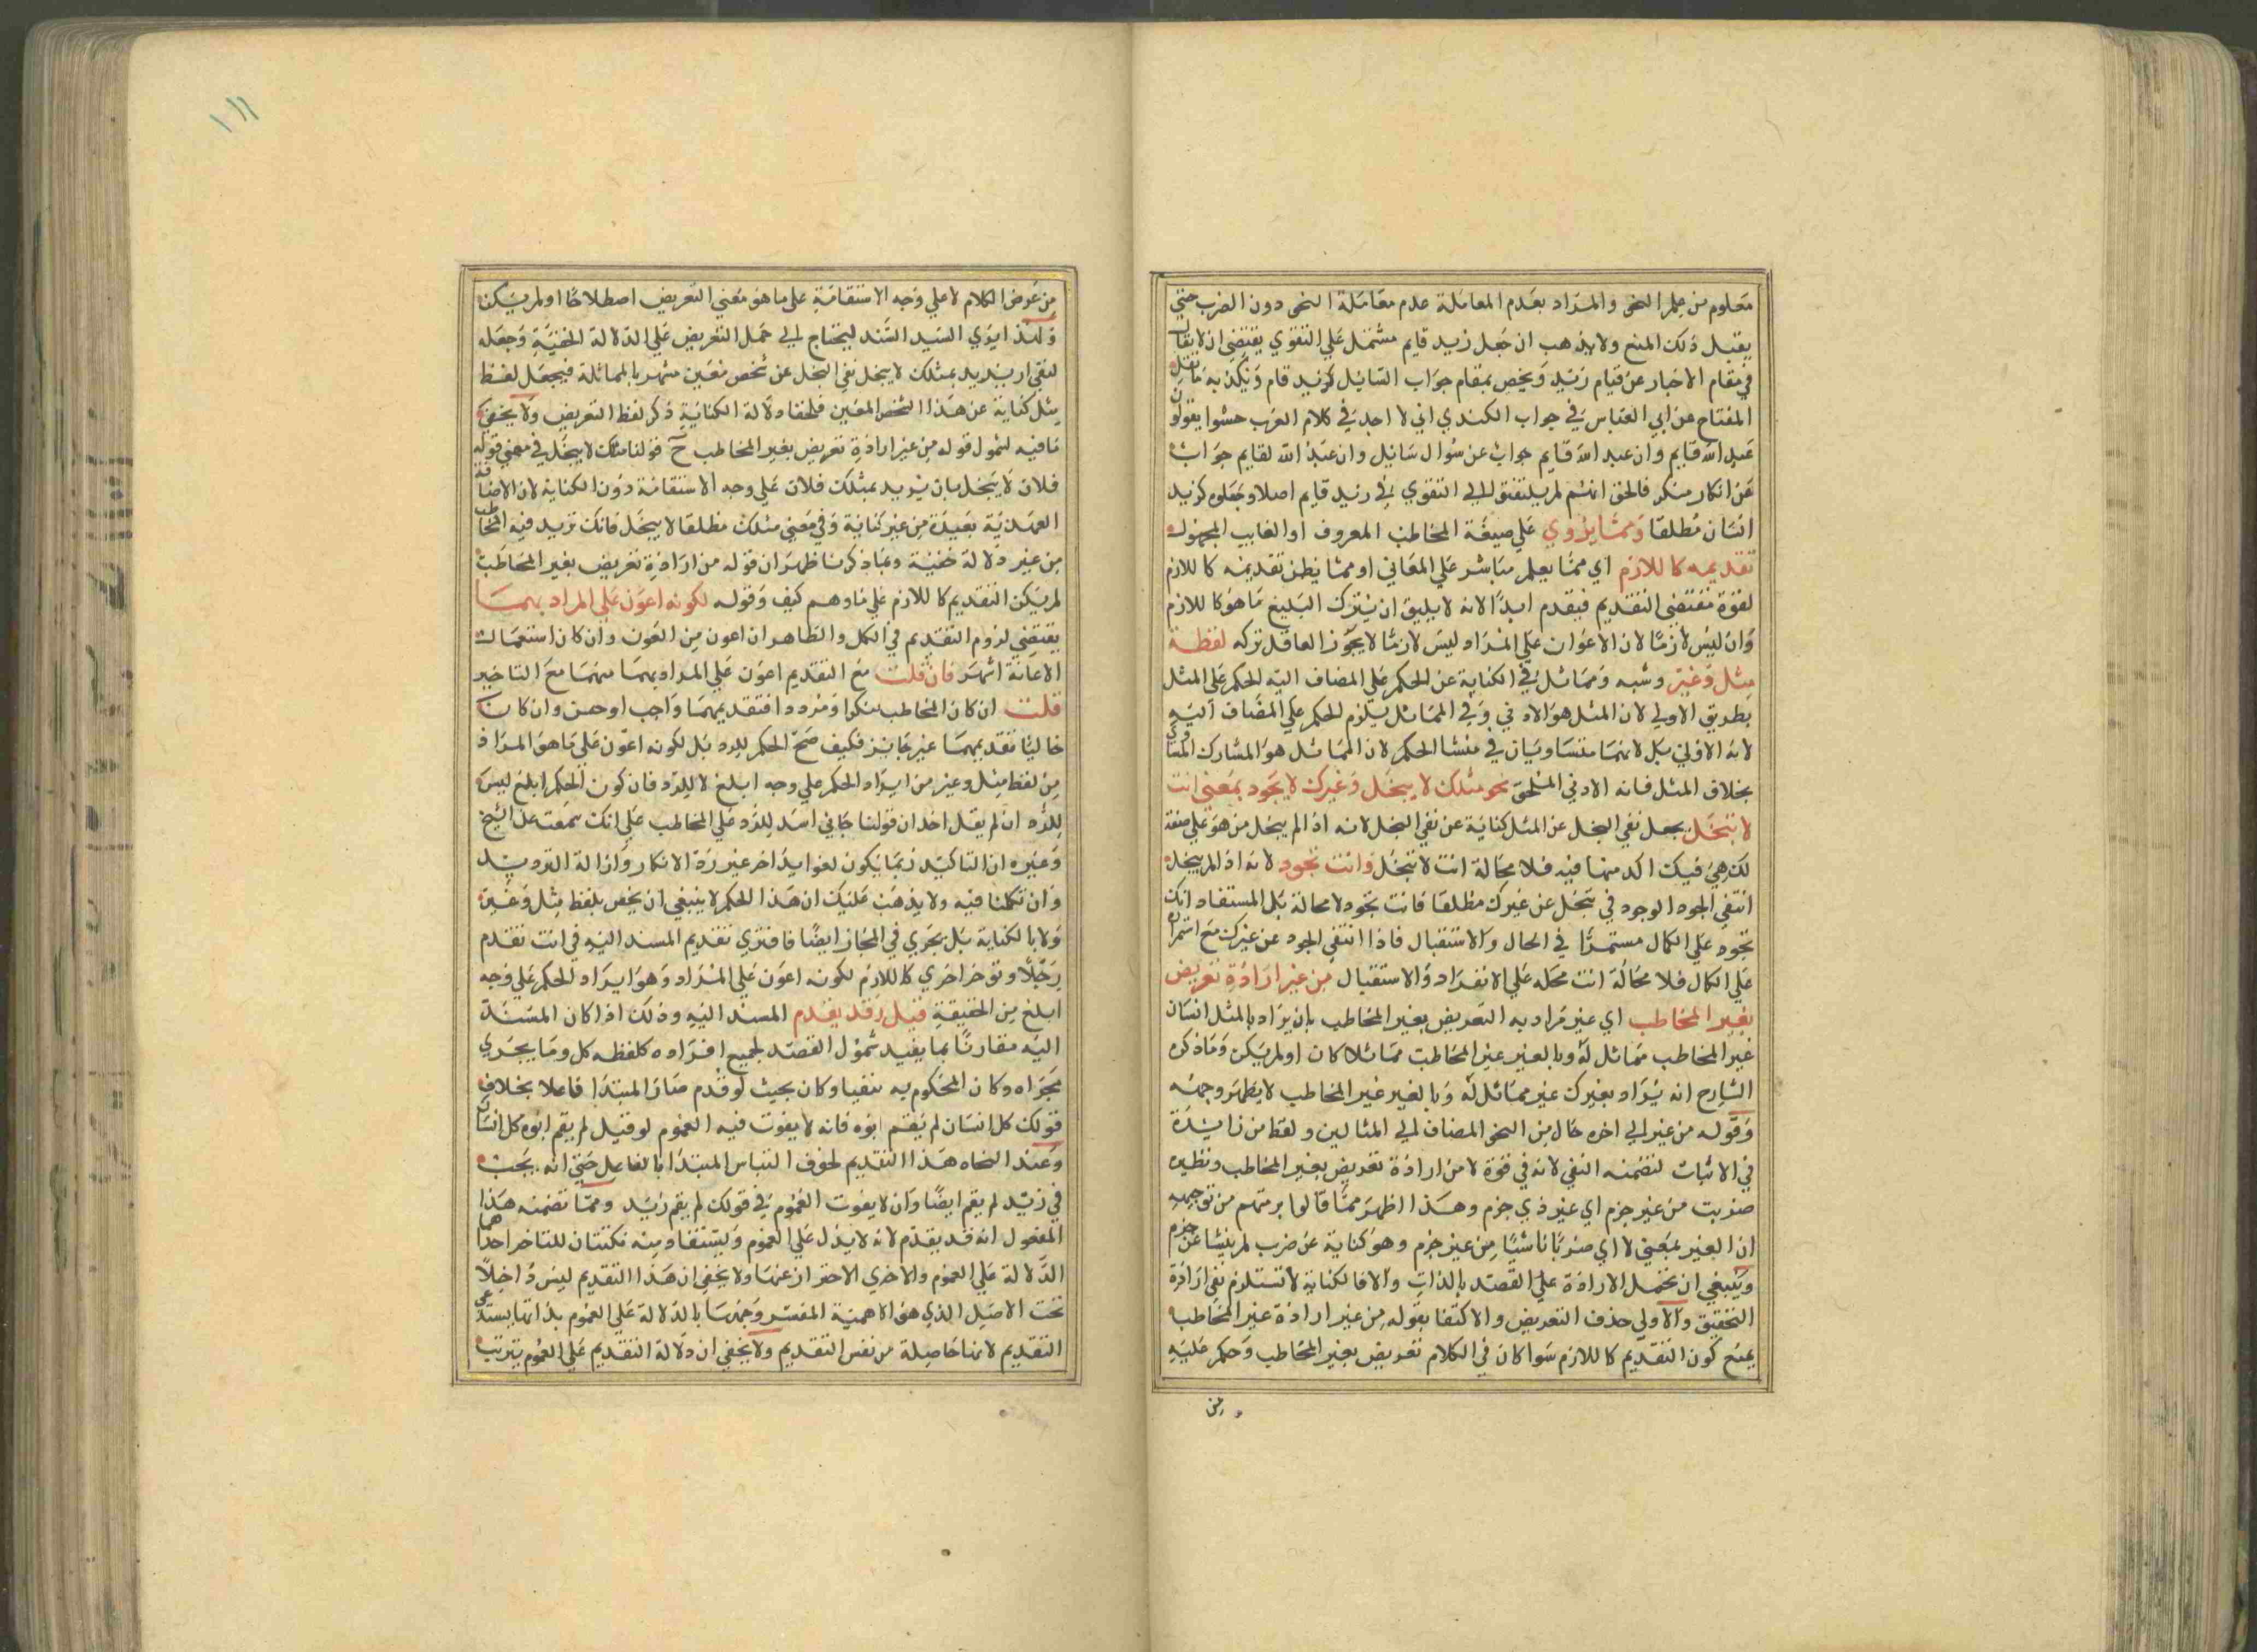 معلوم من علم النحو والمراد بعدم المعاملة عدم معاملة النحو دون الضرب حتي
يقبل ذلك المنع ولا يذهب ان جعل زيد قايم مشتمل علي التقوي يقتضي ان لا يقال
في مقام الاخبار عن قيام زيد ويخص بمقام جواب السائل كزيد قام ويكذبه ما نقل
المفتاح عن ابي العباس في جواب الكندي اني لا اجد في كلام العرب حشوا يقولون
عبد الله قايم وان عبد الله قايم جواب عن سؤال سائل وان عبد الله لقايم جواب
عن انكار منكر فالحق انهم لم يلتفتوا الي التقوي في زيد قايم اصلا وجعلوه كزيد
انسان مطلقا ومما يروي علي صيغة المخاطب المعروف او الغايب المجهول
تقديمه كاللازم اي مما يعلم مباشر علي المعاني او مما يظن تقديمه كاللازم
لقوة مقتضي التقديم فيقدم ابدا لانه لا يليق ان يترك البليغ ما هو كاللازم
وان ليس لازما لان الاعوان علي المراد ليس لازما لا يجوز العاقل تركه لفظة
مثل وغير وشبه ومماثل في الكناية عن الحكم علي المضاف اليه الحكم علي المثل
بطريق الاولي لان المثل هو الادني وفي المماثل يلزم الحكم علي المضاف اليه
لانه الاولي بل لانهما متساويان في منشا الحكم لان المماثل هو المشارك المساوي
بخلاف المثل فانه الادني الملحق نحو مثلك لا يبخل وغيرك لا يجود بمعني انت
لا تبخل بجعل نفي البخل عن المثل كناية عن نفي البخل لانه اذا لم يبخل من هو علي صفة
لك هي فيك اكد منها فيه فلا محالة انت لا تبخل وانت تجود لانه اذا لم يبخل
انتفي الجود الوجود في تبخل عن غيرك مطلقا فانت تجود لا محالة بل المستفاد انك
تجود علي الكمال مستمرا في الحال والاستقبال فاذا انتفي الجود عن غيرك مع استمراره
علي الكمال فلا محالة انت محله علي الانفراد والاستقبال من غير ارادة تعريض
بغير المخاطب اي غير مراد به التعريض بغير المخاطب بان يراد بالمثل انسان
غير المخاطب مماثل له وبالغير غير المخاطب مماثلا كان او لم يكن وما ذكره
الشارح انه يراد بغيرك غير مماثل له وبالغير غير المخاطب لا يظهر وجهه
وقوله من غير الي اخره حال من النحو المضاف الي المثالين ولفظ من زائدة
في الاثبات لتضمنه النفي لانه في قوة لا من ارادة تعريض بغير المخاطب ونظيره
ضربت من غير جزم اي غير ذي جزم وهذا اظهر مما قالوا برمتهم من توجيهه
ان الغير بمعني لا اي ضربا ناشيا من غير جزم وهو كناية عن ضرب لم ينشا عن جزم
وينبغي ان تحمل الارادة علي القصد بالذات والا فالكناية لا تستلزم نفي ارادة
التحقيق والاولي حذف التعريض والاكتفا بقوله من غير ارادة غير المخاطب
يمنع كون التقديم كاللازم سوا كان في الكلام تعريض بغير المخاطب وحكم عليه
من
١١١
من عرض الكلام لا علي وجه الاستقامة علي ما هو معني التعريض اصطلاحا او لم يكن
ولهذا يؤي السيد السند ليحتاج الي حمل التعريض علي الدلالة الخفية وجعله
لنفي ان يريد بمثلك لا يبخل نفي البخل عن شخص معين مشهر بالمماثلة فيجعل لفظ
مثل كناية عن هذا الشخص المعين فلخفا دلالة الكناية ذكر لفظ التعريض ولا يخفي
ما فيه لشمول قوله من غير ارادة تعريض بغير المخاطب ح قولنا مثلك لا يبخل في معني قوله
فلان لا يبخل بان يريد بمثلك فلان علي وجه الاستقامة دون الكناية لان الاضافة
العهدية بعيدة من غير كناية وفي معني مثلك مطلقا لا يبخل فانك تريد فيه المخاطب
من غير دلالة خفية وبما ذكرنا ظهر ان قوله من ارادة تعريض بغير المخاطب
لم يكن التقديم كاللازم علي ما وهم كيف وقوله لكونه اعون علي المراد بهما
يقتضي لزوم التقديم في الكل والظاهر ان اعون من العون وان كان استعمال
الاعانة اشهر فان قلت مع التقديم اعون علي المراد بهما منهما مع التاخير
قلت ان كان المخاطب منكرا ومردودا فتقديمهما واجب او حسن وان كان
خاليا تقديمهما غير جايز فكيف صح الحكم للرد بل لكونه اعون علي ما هو المراد
من لفظ مثل وغير من ايراد الحكم علي وجه ابلغ لا للرد فان كون الحكم ابلغ ليس
للرد ان لم يقل احد ان قولنا جاني اسد للرد علي المخاطب علي انك سمعت عن الشيخ
وغيره ان التاكيد ربما يكون لفوايد اخر غير رد الانكار وازالة الترديد
وان تكلمنا فيه ولا يذهب عليك ان هذا الحكم لا ينبغي ان يخص بلفظ مثل وغير
ولا بالكناية بل يجري في المجاز ايضا فافتري تقديم المسند اليه في انت تقدم
رجلا وتوخر اخري كاللازم لكونه اعون علي المراد وهو ايراد الحكم علي وجه
ابلغ من الحقيقة قيل وقد يقدم المسند اليه وذلك اذا كان المسند
اليه مقارنا بما يفيد شمول القصد لجميع افراده كلفظه كل وما يجري
مجراه وكان المحكوم به منفيا وكان بحيث لو قدم صار المبتدا فاعلا بخلاف
قولك كل انسان لم يقم ابوه فانه لا يفوت فيه العموم لو قيل لم يقم ابوه كل انسان
وعند النحاه هذا التقديم لخوف التباس المبتدا بالفاعل حتي انه يجب
في زيد لم يقم ايضا وان لا يفوت العموم في قولك لم يقم زيد ومما تضمنه هذا
المقول انه قد يقدم لانه لا يدل علي العموم ويستفاد منه نكتتان للتاخر احداهما
الدلالة علي العموم والاخري الاحتراز عنها ولا يخفي ان هذا التقديم ليس داخلا
تحت الاصل الذي هو الاهمية المفسر وجهها بالدلالة علي العموم بذاتها يستدعي
التقديم لانها حاصلة من نفس التقديم ولا يخفي ان دلالة التقديم علي العموم يترتب